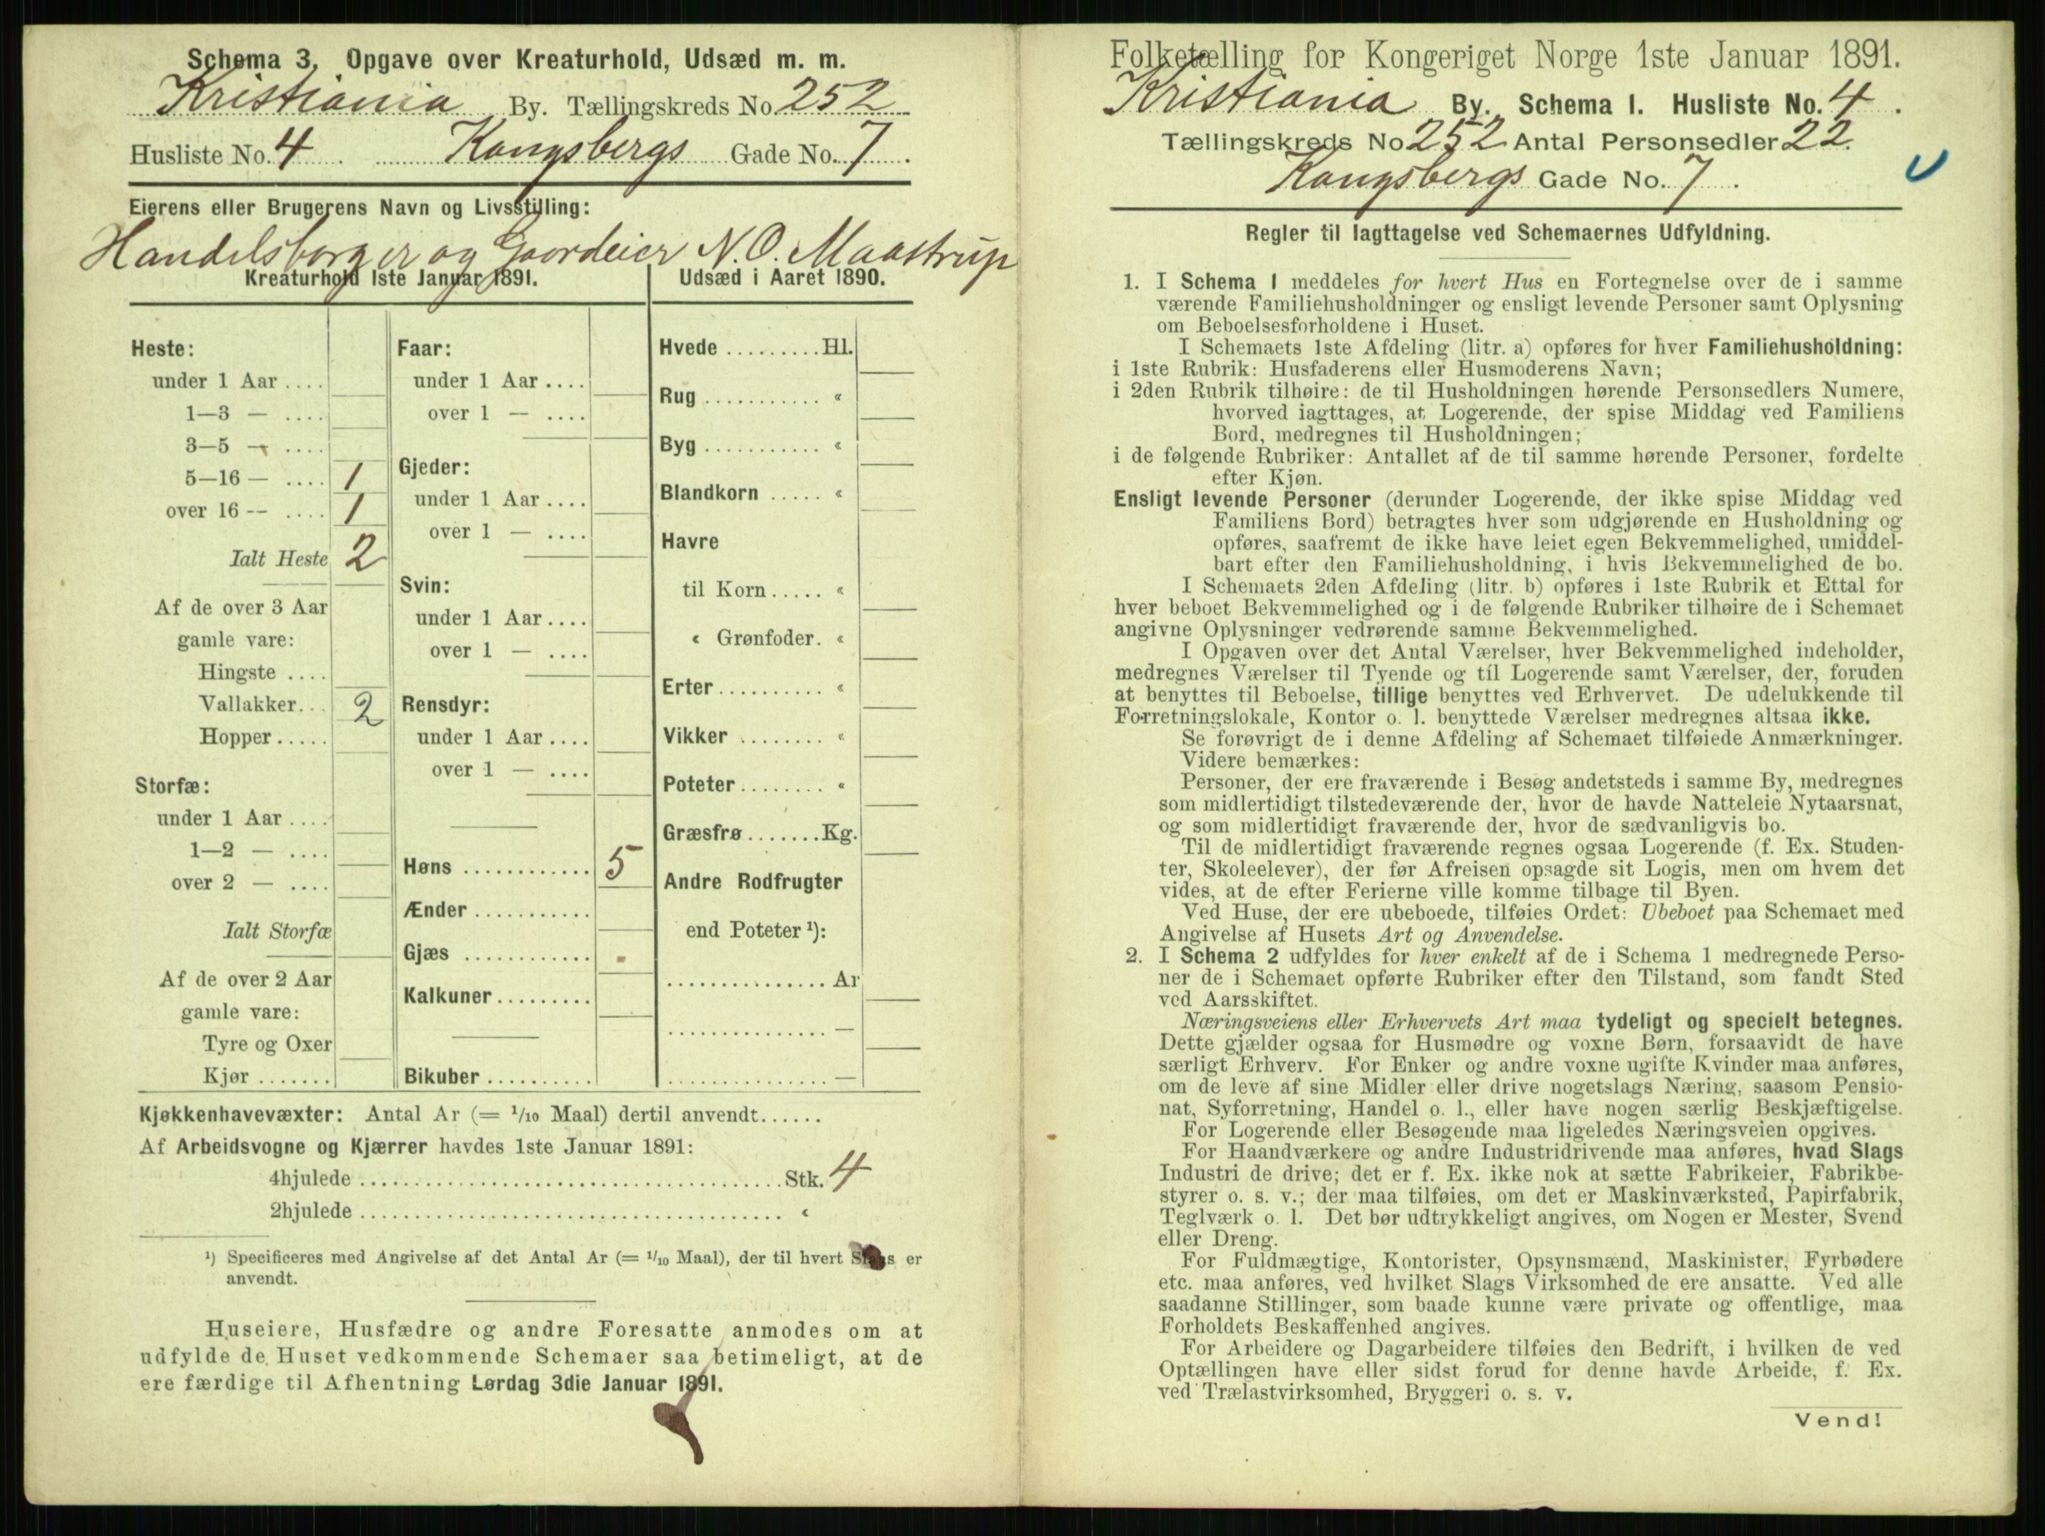 Schema 3. Opgave over Kreaturhold, Udsæd m. m.
Kristiania By. Tællingskreds No. 252
Husliste No. 4. Kongsbergs Gade No. 7.
Eierens eller Brugerens Navn og Livsstilling:
Handelsborger og Gaardeier N. O. Maastrup
Kreaturhold 1ste Januar 1891.
Heste:
under 1 Aar ....
1—3 — ....
3—5 — ....
5—16 — .... 1
over 16 -- .... 1
Ialt Heste 2
Af de over 3 Aar
gamle vare:
Hingste ....
Vallakker... 2
Hopper .....
Storfæ:
under 1 Aar ....
1—2 — ....
over 2 — ....
Ialt Storfæ
Af de over 2 Aar
gamle vare:
Tyre og Oxer
Kjør .......
Faar:
under 1 Aar ....
over 1 — ....
Gjeder:
under 1 Aar ....
over 1 — ....
Svin:
under 1 Aar ....
over 1 — ....
Rensdyr:
under 1 Aar ....
over 1 — ....
Høns ............ 5
Ænder ...........
Gjæs ............
Kalkuner.........
Bikuber..........
Udsæd i Aaret 1890.
Hvede .........Hl.
Rug ........... «
Byg ........... «
Blandkorn ..... «
Havre
til Korn ..... «
« Grønfoder. «
Erter.......... «
Vikker ........ «
Poteter........ «
Græsfrø .......Kg.
Andre Rodfrugter
end Poteter ¹):
............... Ar
............... —
............... —
Kjøkkenhavevæxter: Antal Ar (= 1/10 Maal) dertil anvendt......
Af Arbeidsvogne og Kjærrer havdes 1ste Januar 1891:
4hjulede ....................................... Stk. 4
2hjulede ....................................... «
¹) Specificeres med Angivelse af det Antal Ar (= 1/10 Maal), der til hvert Slags er
anvendt.
Huseiere, Husfædre og andre Foresatte anmodes om at
udfylde de Huset vedkommende Schemaer saa betimeligt, at de
ere færdige til Afhentning Lørdag 3die Januar 1891.
Folketælling for Kongeriget Norge 1ste Januar 1891.
Kristiania By. Schema 1. Husliste No. 4.
Tællingskreds No 252 Antal Personsedler 22.
Kongsbergs Gade No. 7.
Regler til Iagttagelse ved Schemaernes Udfyldning.
1. I Schema 1 meddeles for hvert Hus en Fortegnelse over de i samme
værende Familiehusholdninger og ensligt levende Personer samt Oplysning
om Beboelsesforholdene i Huset.
I Schemaets 1ste Afdeling (litr. a) opføres for hver Familiehusholdning:
i 1ste Rubrik: Husfaderens eller Husmoderens Navn;
i 2den Rubrik tilhøire: de til Husholdningen hørende Personsedlers Numere,
hvorved iagttages, at Logerende, der spise Middag ved Familiens
Bord, medregnes til Husholdningen;
i de følgende Rubriker: Antallet af de til samme hørende Personer, fordelte
efter Kjøn.
Ensligt levende Personer (derunder Logerende, der ikke spise Middag ved
Familiens Bord) betragtes hver som udgjørende en Husholdning og
opføres, saafremt de ikke have leiet egen Bekvemmelighed, umiddel-
bart efter den Familiehusholdning, i hvis Bekvemmelighed de bo.
I Schemaets 2den Afdeling (litr. b) opføres i 1ste Rubrik et Ettal for
hver beboet Bekvemmelighed og i de følgende Rubriker tilhøire de i Schemaet
angivne Oplysninger vedrørende samme Bekvemmelighed.
I Opgaven over det Antal Værelser, hver Bekvemmelighed indeholder,
medregnes Værelser til Tyende og til Logerende samt Værelser, der, foruden
at benyttes til Beboelse, tillige benyttes ved Erhvervet. De udelukkende til
Forretningslokale, Kontor o. l. benyttede Værelser medregnes altsaa ikke.
Se forøvrigt de i denne Afdeling af Schemaet tilføiede Anmærkninger.
Videre bemærkes:
Personer, der ere fraværende i Besøg andetsteds i samme By, medregnes
som midlertidigt tilstedeværende der, hvor de havde Natteleie Nytaarsnat,
og som midlertidigt fraværende der, hvor de sædvanligvis bo.
Til de midlertidigt fraværende regnes ogsaa Logerende (f. Ex. Studen-
ter, Skoleelever), der før Afreisen opsagde sit Logis, men om hvem det
vides, at de efter Ferierne ville komme tilbage til Byen.
Ved Huse, der ere ubeboede, tilføies Ordet: Ubeboet paa Schemaet med
Angivelse af Husets Art og Anvendelse.
2. I Schema 2 udfyldes for hver enkelt af de i Schema 1 medregnede Perso-
ner de i Schemaet opførte Rubriker efter den Tilstand, som fandt Sted
ved Aarsskiftet.
Næringsveiens eller Erhvervets Art maa tydeligt og specielt betegnes.
Dette gjælder ogsaa for Husmødre og voxne Børn, forsaavidt de have
særligt Erhverv. For Enker og andre voxne ugifte Kvinder maa anføres,
om de leve af sine Midler eller drive nogetslags Næring, saasom Pensio-
nat, Syforretning, Handel o. l., eller have nogen særlig Beskjæftigelse.
For Logerende eller Besøgende maa ligeledes Næringsveien opgives.
For Haandværkere og andre Industridrivende maa anføres, hvad Slags
Industri de drive; det er f. Ex. ikke nok at sætte Fabrikeier, Fabrikbe-
styrer o. s. v.; der maa tilføies, om det er Maskinværksted, Papirfabrik,
Teglværk o. l. Det bør udtrykkeligt angives, om Nogen er Mester, Svend
eller Dreng.
For Fuldmægtige, Kontorister, Opsynsmænd, Maskinister, Fyrbødere
etc. maa anføres, ved hvilket Slags Virksomhed de ere ansatte. Ved alle
saadanne Stillinger, som baade kunne være private og offentlige, maa
Forholdets Beskaffenhed angives.
For Arbeidere og Dagarbeidere tilføies den Bedrift, i hvilken de ved
Optællingen have eller sidst forud for denne havde Arbeide, f. Ex.
ved Trælastvirksomhed, Bryggeri o. s. v.
Vend!